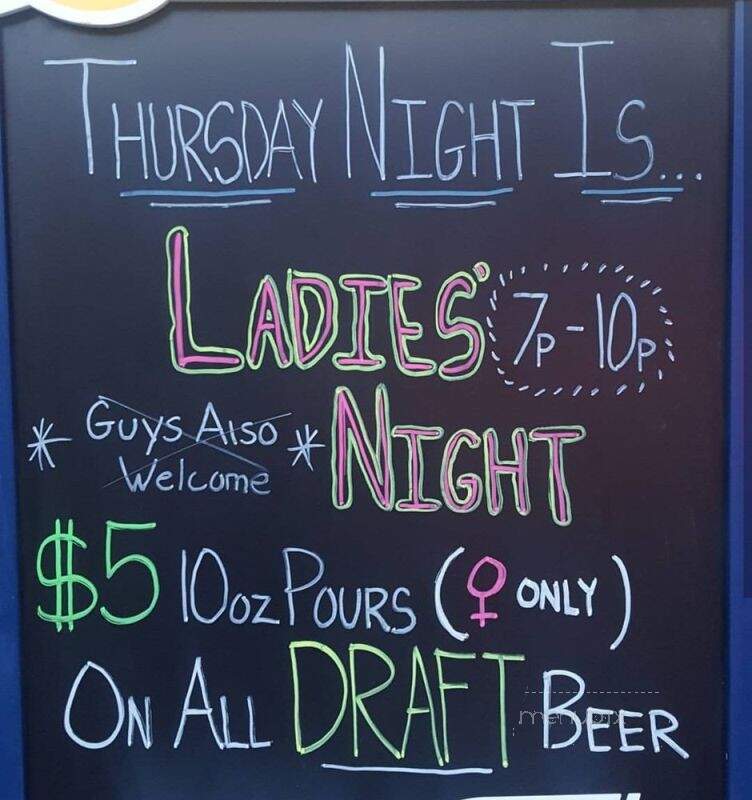 THURSDAY NIGHT IS...
LADIES' 7P-10P
* GUYS ALSO * NIGHT
Welcome
$5 10oz POURS (♀ ONLY)
ON ALL DRAFT BEER
menupix